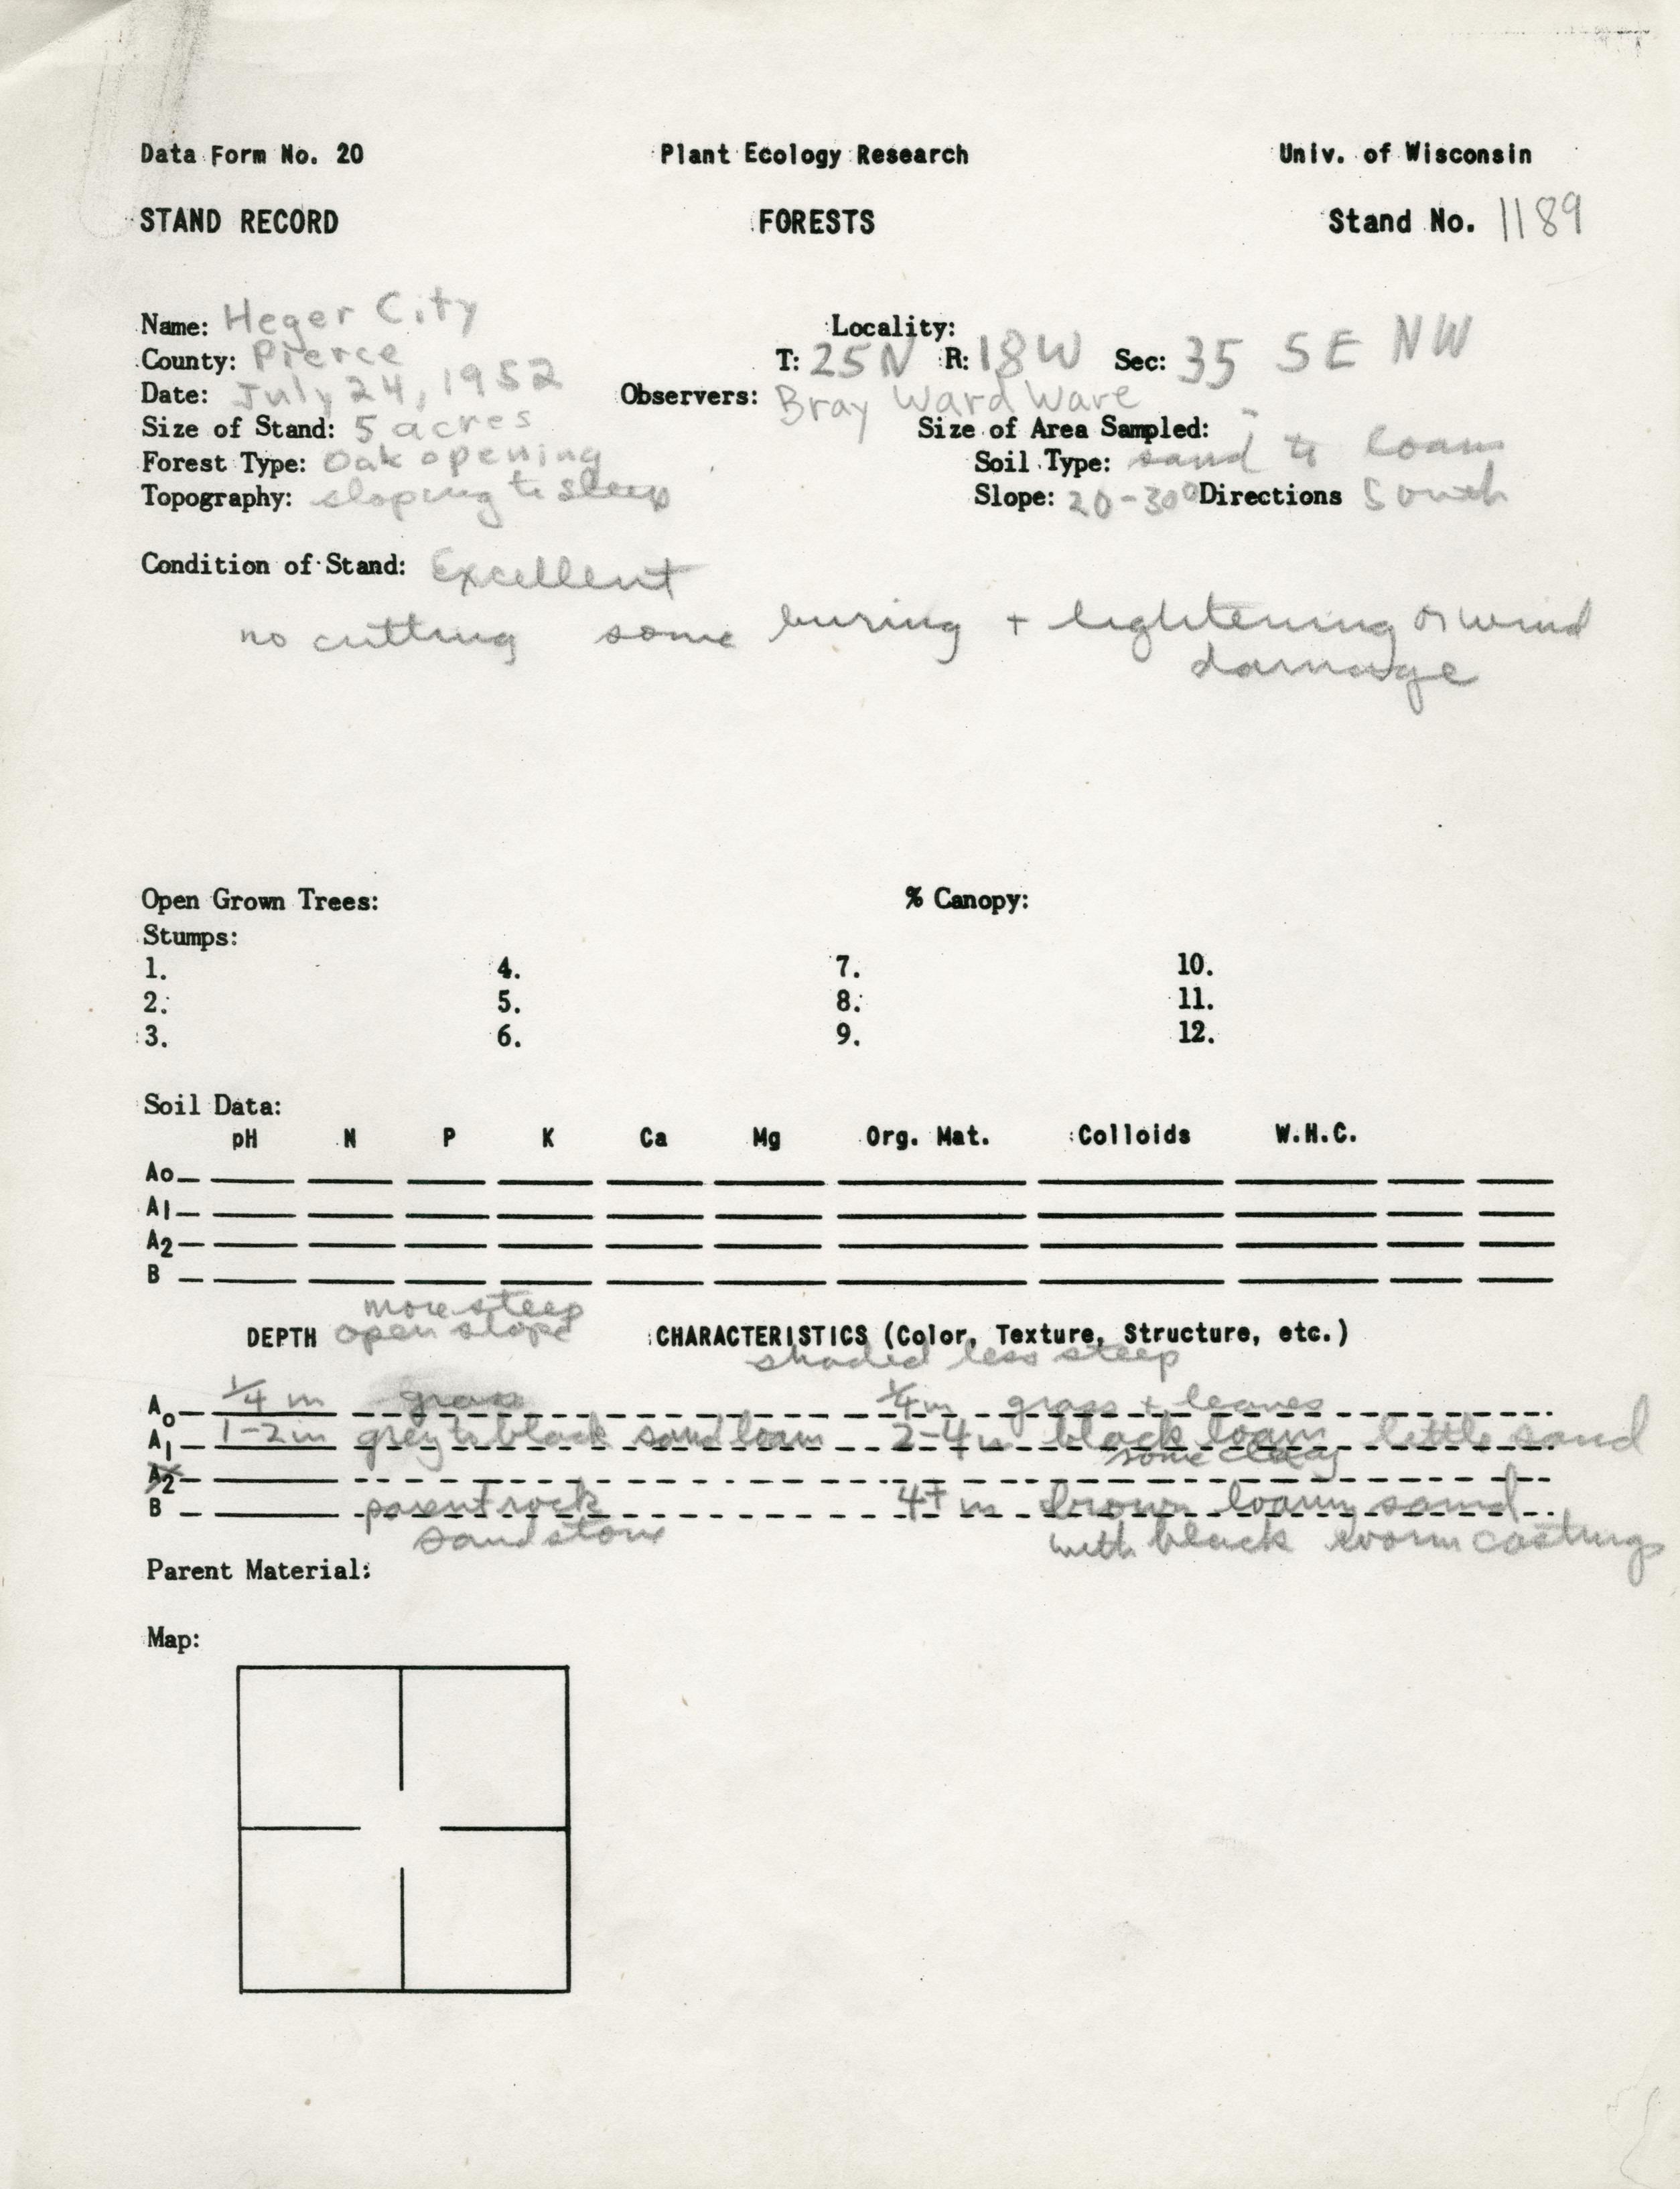 Data Form No. 20 Plant Ecology Research Univ. of Wisconsin
STAND RECORD FORESTS Stand No. 1189
Name: Heger City Locality:
County: Pierce T: 25N R: 18W Sec: 35 SE NW
Date: July 24, 1952 Observers: Bray Ward Ware
Size of Stand: 5 acres Size of Area Sampled:
Forest Type: Oak opening Soil Type: sand to loam
Topography: sloping to steep Slope: 20-30° Directions South
Condition of Stand: Excellent
no cutting some buring + lightening or wind
damage
Open Grown Trees: % Canopy:
Stumps:
1. 4. 7. 10.
2. 5. 8. 11.
3. 6. 9. 12.
Soil Data:
pH N P K Ca Mg Org. Mat. Colloids W.H.C.
Ao
A1
A2
B
more steep
DEPTH open slope CHARACTERISTICS (Color, Texture, Structure, etc.)
shaded less steep
Ao 1/4 in grass 1/4 in grass + leaves
A1 1-2 in grey to black sand loam 2-4 in black loam little sand
some clay
A2
B parent rock 4+ in brown loamy sand
sandstone with black worm castings
Parent Material:
Map: